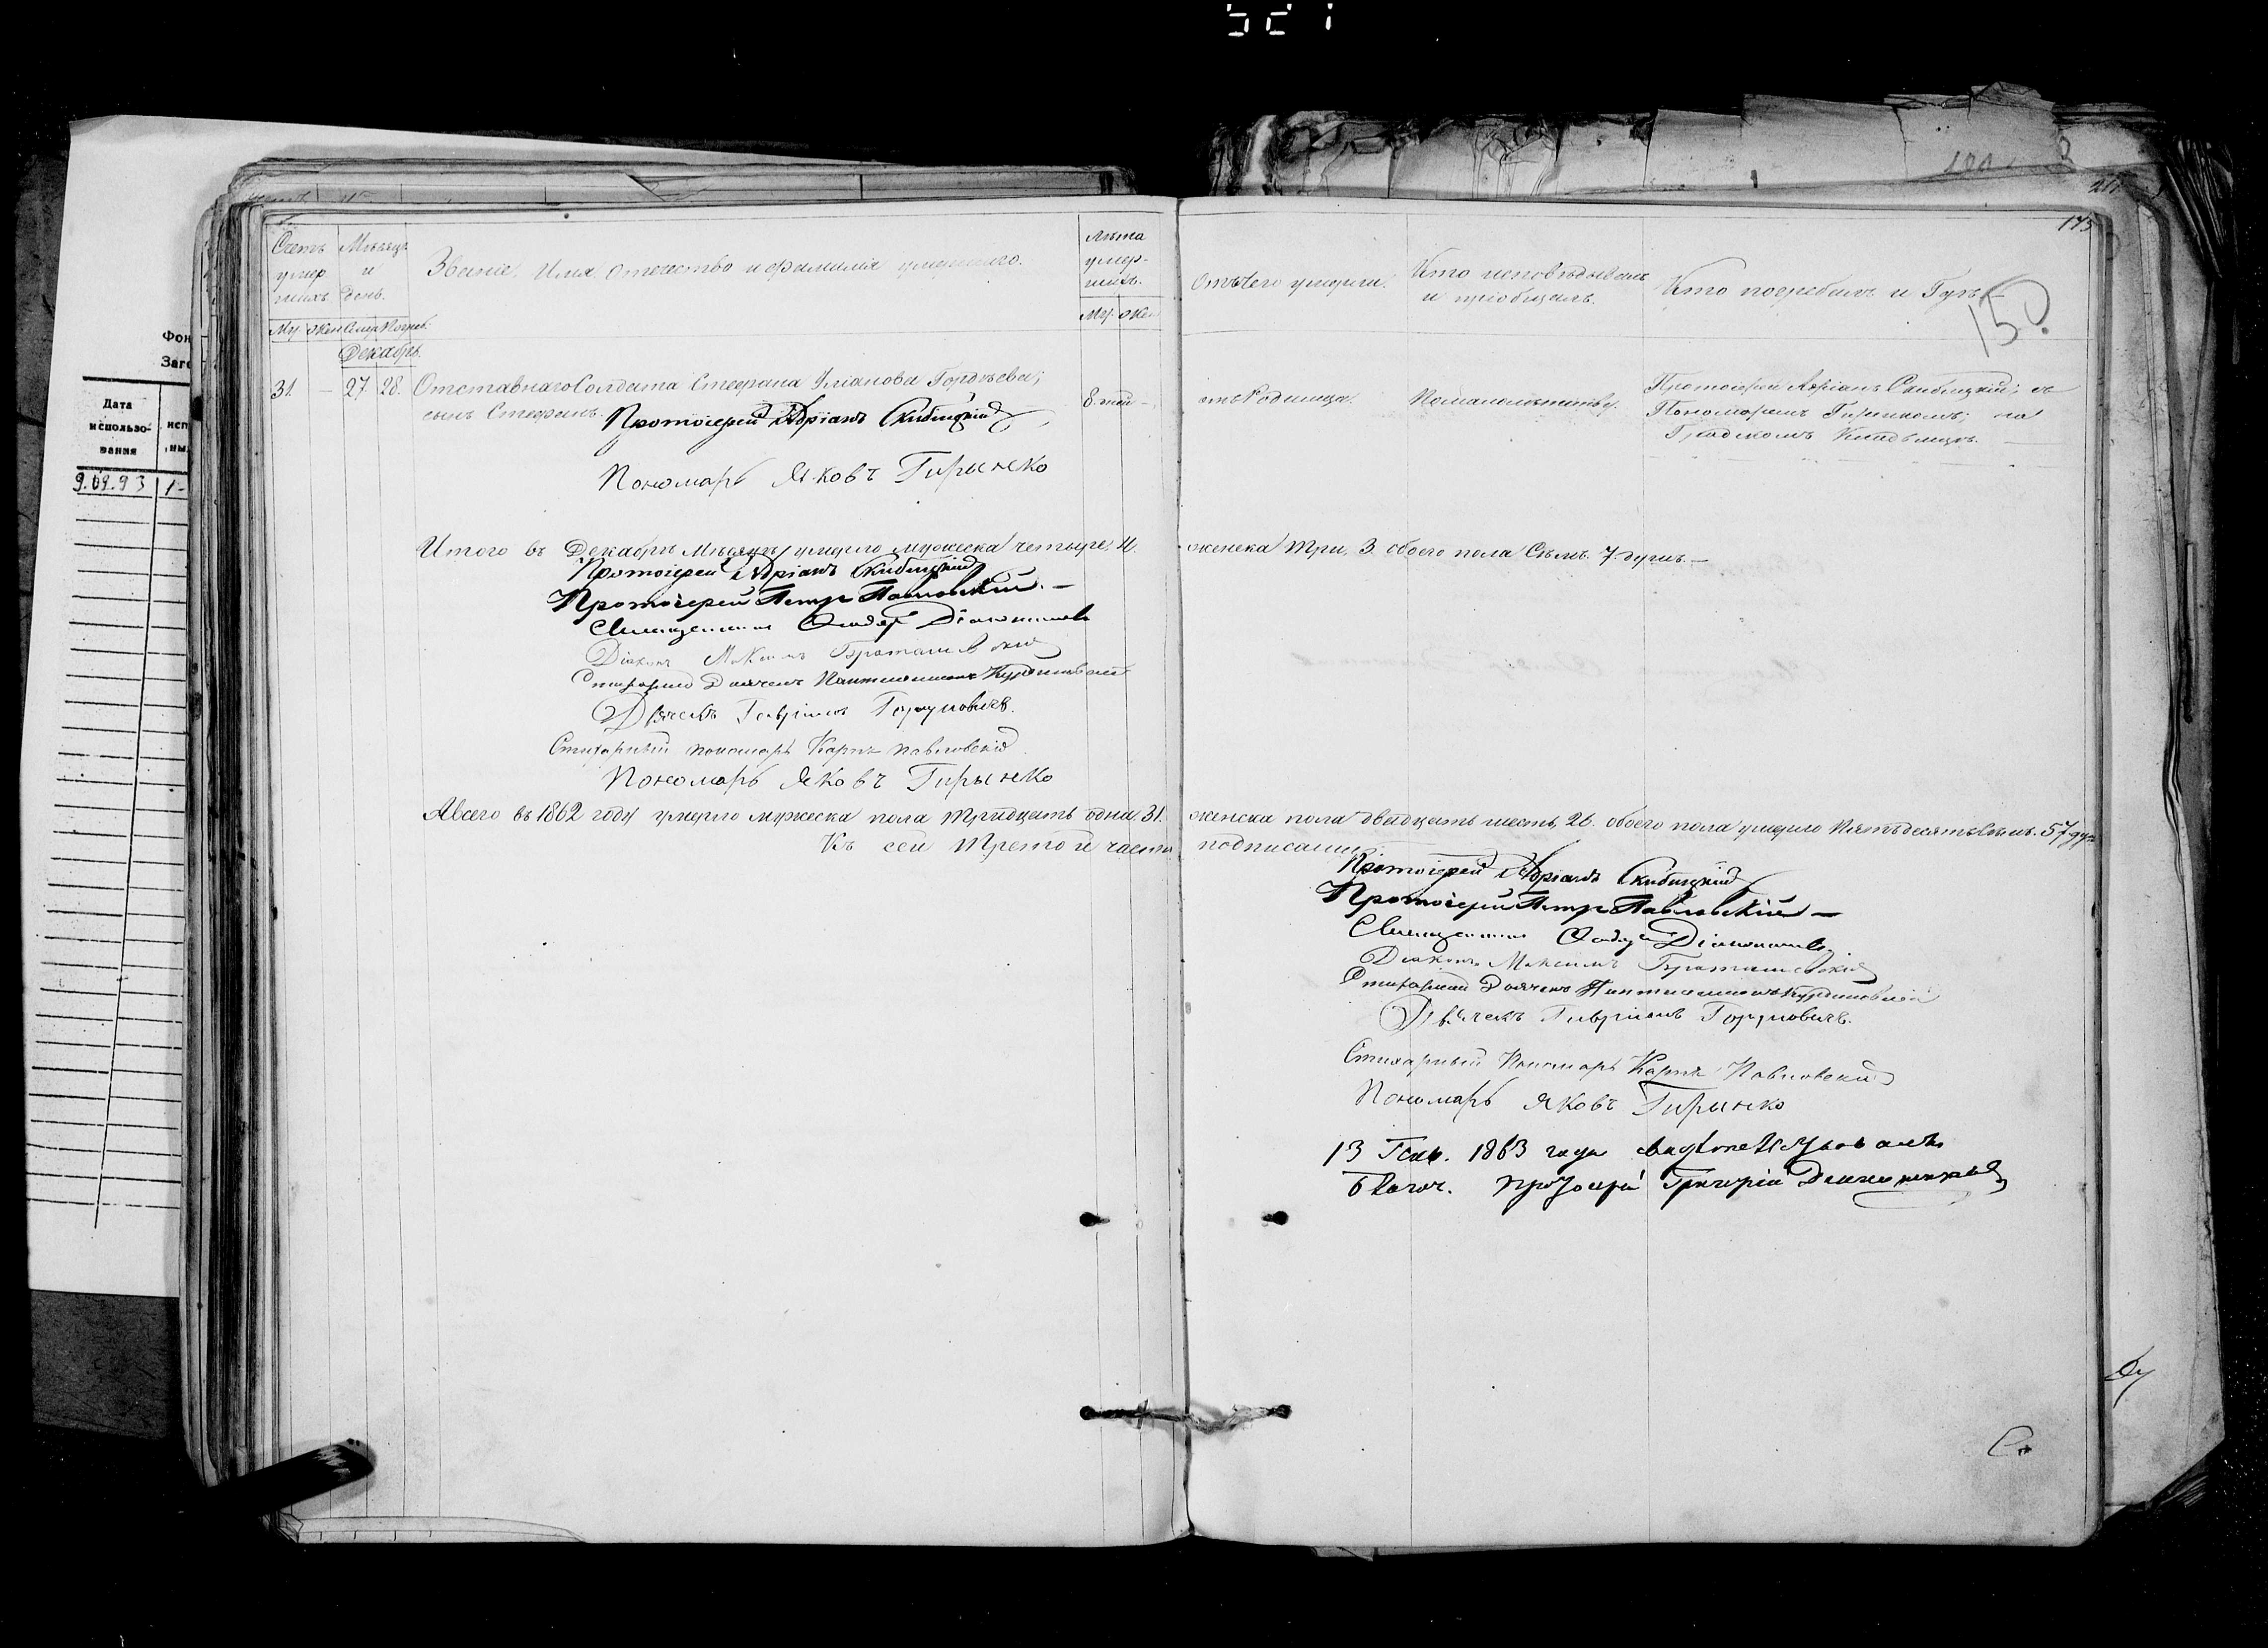 521
Фон
Заго
Дата
использо-
вания
исп
ны
9.09.93 1-
145
150
Счетъ умер шихъ
Мѣсяцъ и день.
Званіе, Имя, отчество и фамилія умершаго.
Лѣта умер- шихъ.
Отъ чего умерли.
Кто исповѣдывалъ и пріобщалъ.
Кто погребалъ и Гдѣ
Му. Жен.
Му. Жен
Декабрь.
31. – 27. 28. Отставнаго Солдата Стефана Уліанова Гордѣева;
сынъ Стефанъ.
8. дней –
отъ Родимца.
По малолѣтству.
Протоіерей Адріанъ Скибицкій; съ
Пономаремъ Гирынкомъ; на
Градскомъ Кладбищѣ.
Протоіерей Адріанъ Скибицкій
Пономарь Яковъ Гирынко
Итого въ Декабрѣ Мѣсяцѣ умерло мужеска четыре, 4. женска три, 3. обоего пола Семь. 7. душъ. –
Протоіерей Адріанъ Скибицкій
Протоіерей Петръ Павловскій. –
Священникъ
Діаконъ Максимъ
Стихарный Дьячекъ
Дьячекъ Гавріилъ
Стихарный пономарь Карпъ Павловскій
Пономарь Яковъ Гирынко
А всего въ 1862 году умерло мужеска пола тридцать одна, 31. женска пола двадцать шесть, 26. обоего пола умерло пятьдесятъ семь. 57 душ
Къ сей третой части подписались:
Протоіерей Адріанъ Скибицкій
Протоіерей Петръ Павловскій –
Священникъ
Діаконъ Максимъ
Стихарный Дьячекъ
Дьячекъ Гавріилъ
Стихарный Пономарь Карпъ Павловскій
Пономарь Яковъ Гирынко
13 Генв. 1863 года свидѣтельствовалъ
Благоч. протоіерей Григорій